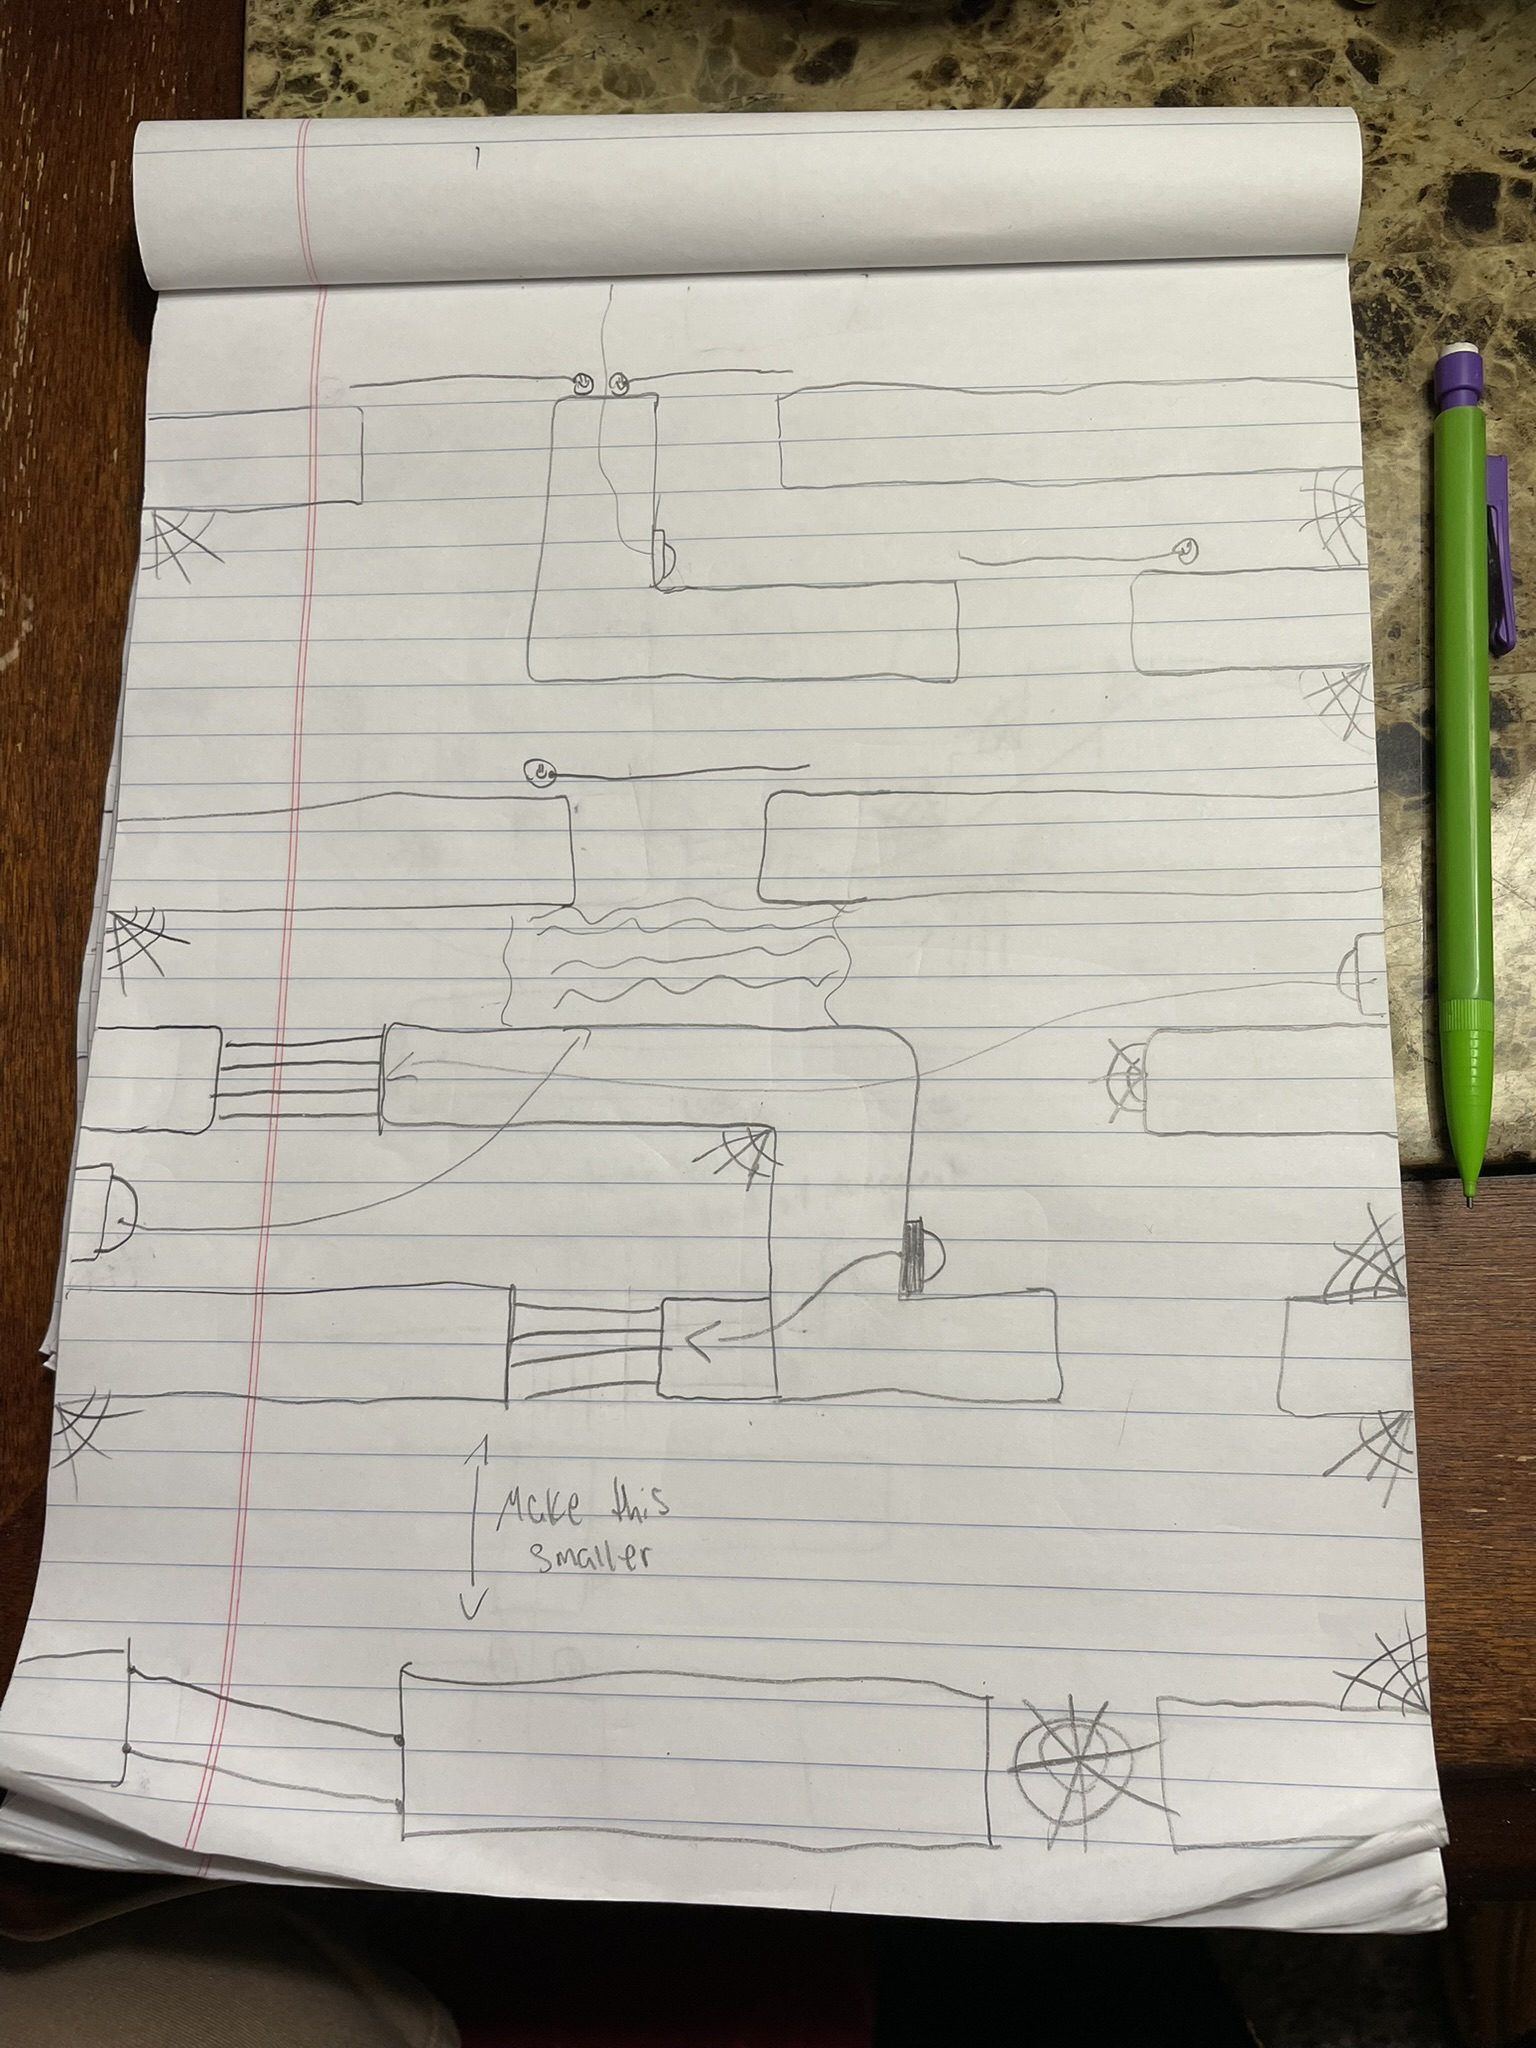 Make this
smaller